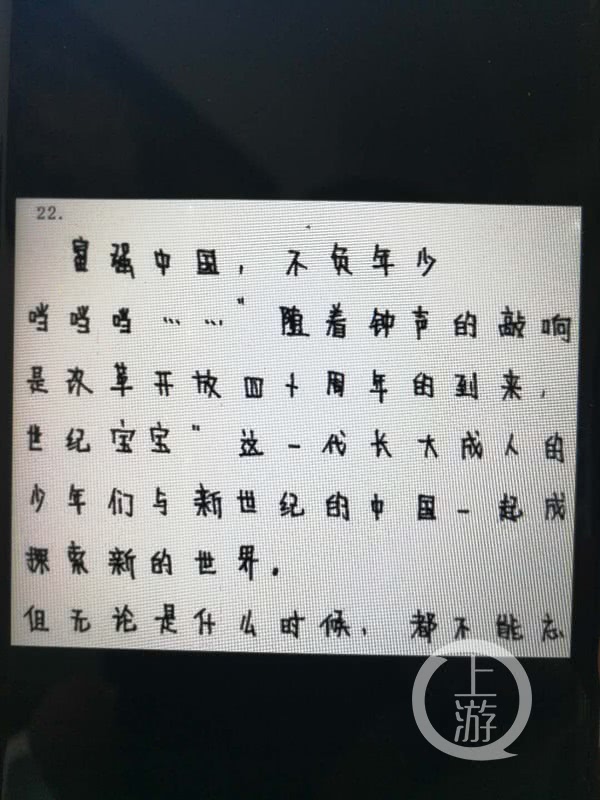 22.
富强中国，不负年少
当当当……"随着钟声的敲响
是改革开放四十周年的到来，
世纪宝宝"这一代长大成人的
少年们与新世纪的中国一起成
探索新的世界。
但无论是什么时候，都不能忘
上游